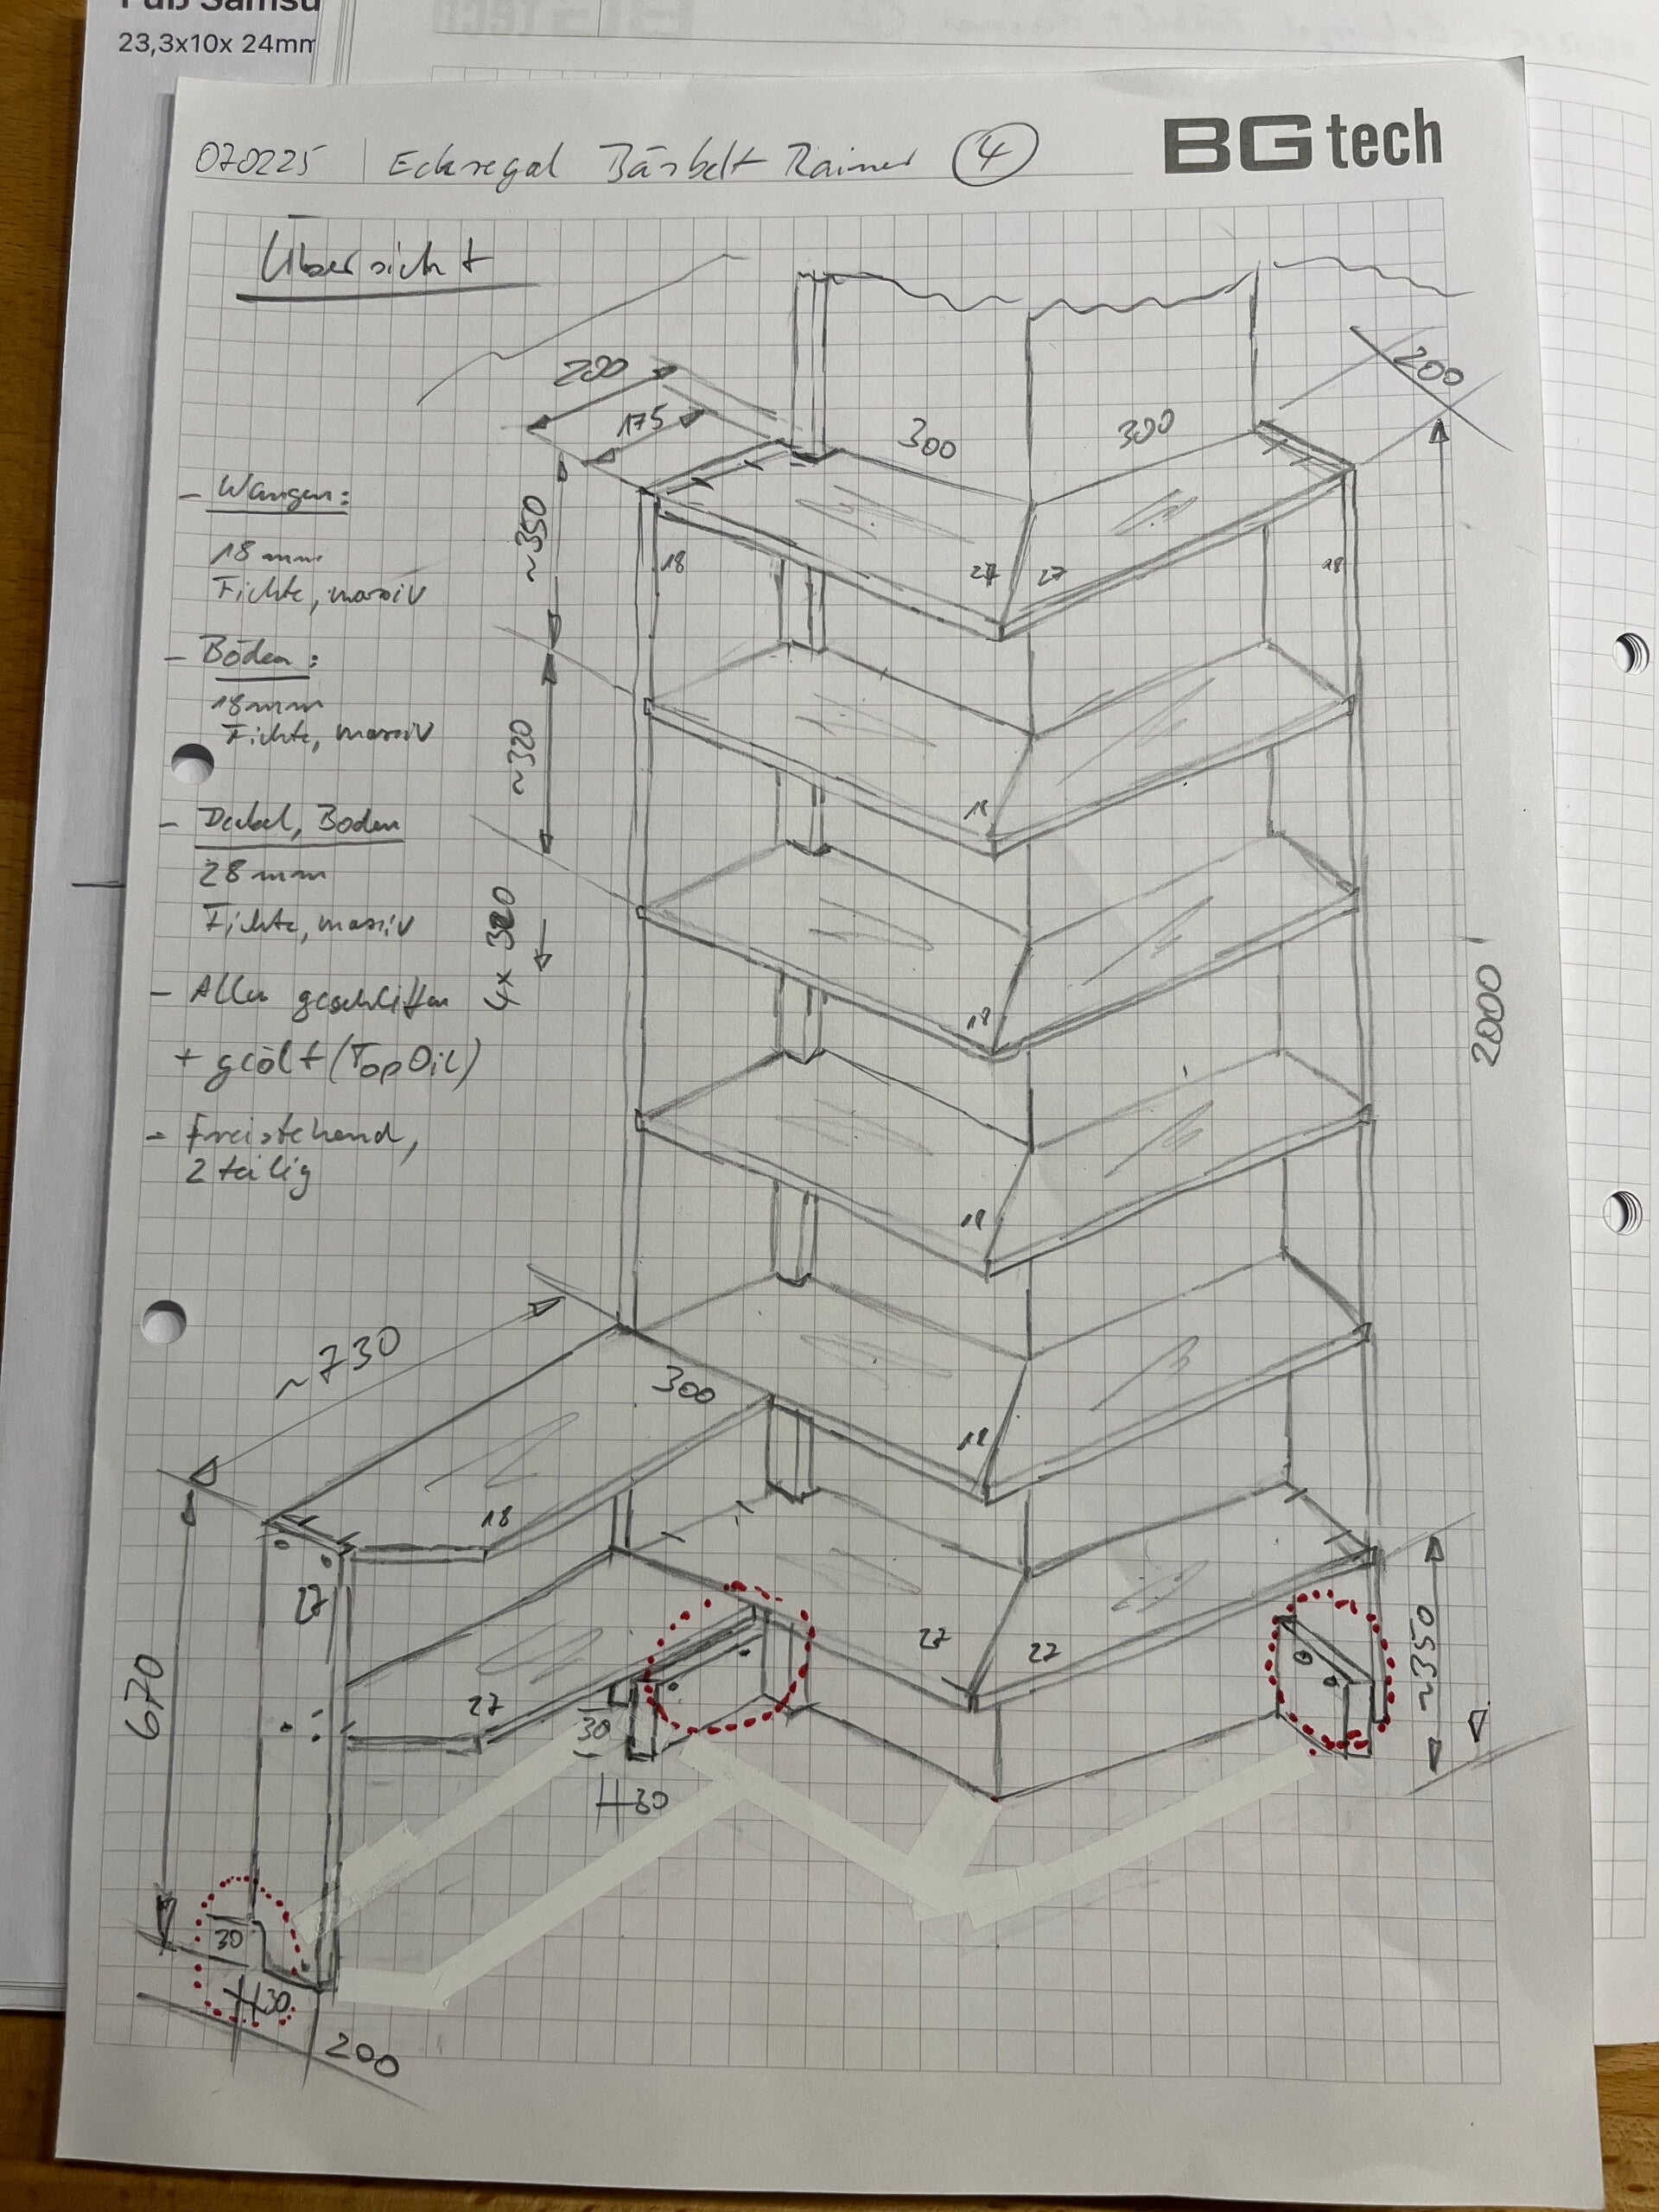 Fuß Samsu
23,3x10x 24mm
BG tech
070225 | Eckregal Bärbel + Rainer 4
Übersicht
200
200
175
300
300
~350
- Wangen:
18 mm
Fichte, massiv
18
27
27
18
- Böden:
18mm
Fichte, massiv
~320
18
- Deckel, Boden
28 mm
Fichte, massiv
4x 320
- Alles geschliffen
+ geölt (TopOil)
18
2000
- Freistehend,
2 teilig
18
~730
300
18
18
27
27
27
~350
670
27
30
30
30
30
200